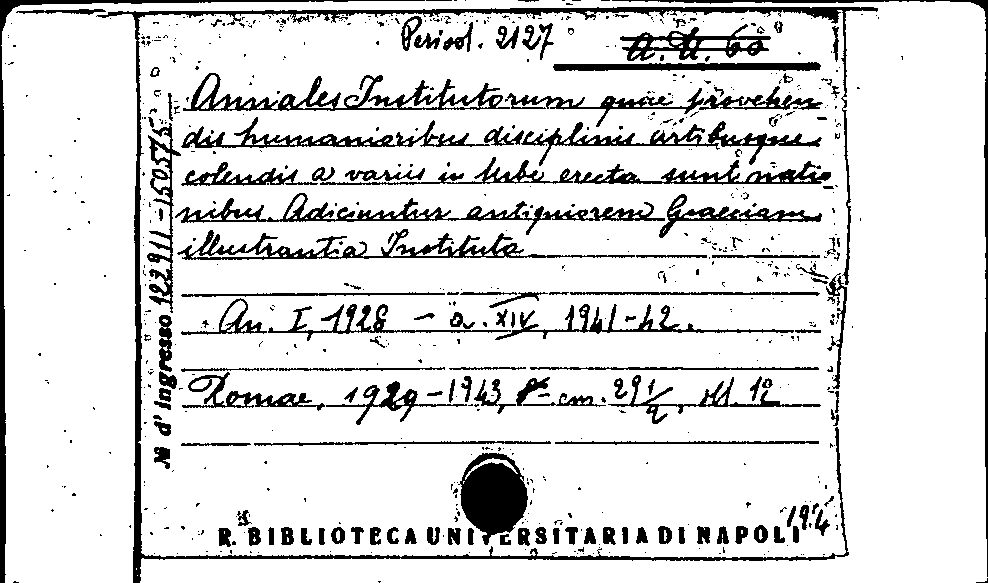 Period. 2127
A. U. 60
Annales Institutorum quae provehen
dis humanioribus disciplinis artibusque
colendis a variis in Urbe erecta sunt natio
nibus. Adiciuntur antiquiorem Graeciam
illustrantia Instituta
An. I, 1928 - a. XIV, 1941-42.
Romae, 1929-1943, 8º cm. 29 1/2.
N d'Ingresso 122911-150575
R. BIBLIOTECA UNIVERSITARIA DI NAPOLI